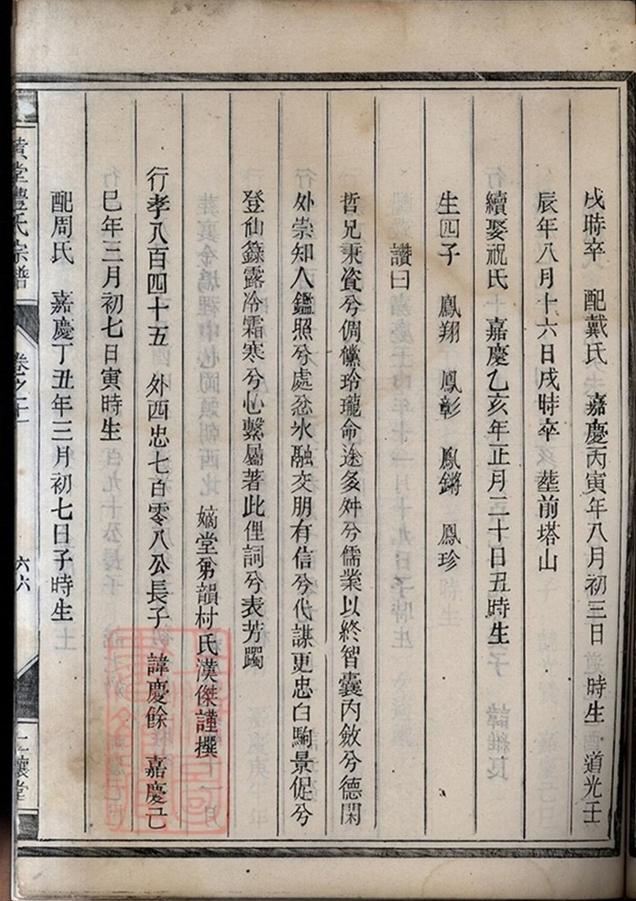 戌時卒　配戴氏　嘉慶丙寅年八月初三日　時生　道光壬
辰年八月十六日戌時卒　塟前塔山
續娶祝氏　嘉慶乙亥年正月二十日丑時生
生四子　鳳翔　鳳彰　鳳鏘　鳳珍
讚曰
哲兄秉資兮倜儻玲瓏命途多舛兮儒業以終智囊內斂兮德閑
外崇知人鑑照兮處忿氷融交朋有信兮代謀更忠白駒景促兮
登仙籙露冷霜寒兮心繫屬著此俚詞兮表芳躅
嫡堂弟韻村氏漢傑謹撰
行孝八百四十五　外西忠七百零八公長子　諱慶餘　嘉慶己
巳年三月初七日寅時生
配周氏　嘉慶丁丑年三月初七日子時生
黃堂豐氏宗譜
卷之
六六
堂